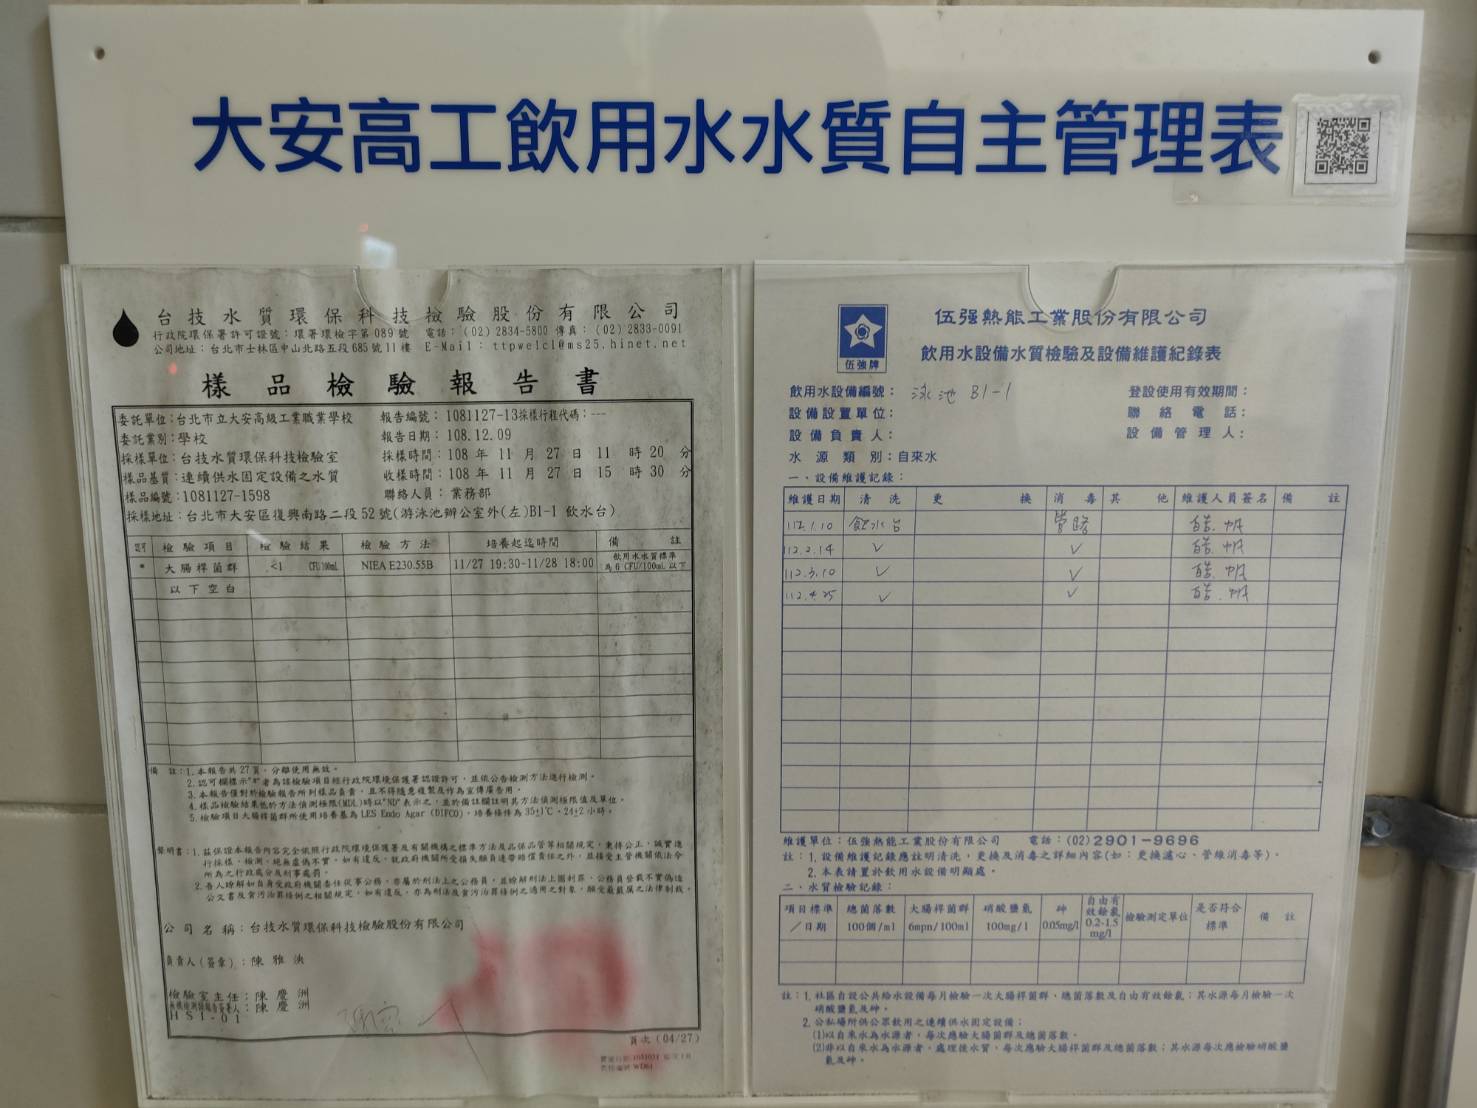 大安高工飲用水水質自主管理表
台技水質環保科技檢驗股份有限公司
行政院環保署許可證號：環署環檢字第089號 電話：(02) 2834-5800 傳真：(02) 2833-0091
公司地址：台北市士林區中山北路五段685號11樓 E-Mail：ttpwelcl@ms25.hinet.net
樣品檢驗報告書
委託單位：台北市立大安高級工業職業學校 報告編號：1081127-13採樣行程代碼：---
委託業別：學校 報告日期：108.12.09
採樣單位：台技水質環保科技檢驗室 採樣時間：108 年 11 月 27 日 11 時 20 分
樣品基質：連續供水固定設備之水質 收樣時間：108 年 11 月 27 日 15 時 30 分
樣品編號：1081127-1598 聯絡人員：業務部
採樣地址：台北市大安區復興南路二段52號(游泳池辦公室外(左)B1-1 飲水台)
檢驗項目 檢驗結果 檢驗方法 培養起迄時間 備註
* 大腸桿菌群 <1 CFU/100mL NIEA E230.55B 11/27 19:30-11/28 18:00 飲用水水質標準為 6 CFU/100mL 以下
以下空白
備註：1.本報告共27頁，分離使用無效。
2.認可欄標示"*"者為該檢驗項目經行政院環境保護署認證許可，並依公告檢測方法進行檢測。
3.本報告僅對於檢驗報告所列樣品負責，且不得隨意複製及作為宣傳廣告用。
4.樣品檢驗結果低於方法偵測極限(MDL)時以"ND"表示之，並於備註欄註明其方法偵測極限值及單位。
5.檢驗項目大腸桿菌群所使用培養基為LES Endo Agar (DIFCO)，培養條件為35±1℃，24±2小時。
聲明書：1.茲保證本報告內容完全依照行政院環境保護署及有關機構之標準方法及品保品管等相關規定，秉持公正、誠實進
行採樣、檢測，絕無虛偽不實，如有違反，就政府機關所受損失願負連帶賠償責任之外，並接受主管機關依法令
所為之行政處分及刑事處罰。
2.吾人瞭解如自身受政府機關委任從事公務，亦屬於刑法上之公務員，並瞭解刑法上圖利罪、公務員登載不實偽造
公文書及貪污治罪條例之相關規定，如有違反，亦為刑法及貪污治罪條例之適用之對象，願受最嚴厲之法律制裁。
公司名稱：台技水質環保科技檢驗股份有限公司
負責人(簽章)：陳雅泱
檢驗室主任：陳慶洲
陳慶洲
HSI-01
頁次(04/27)
伍強牌
伍强熱能工業股份有限公司
飲用水設備水質檢驗及設備維護紀錄表
飲用水設備編號：泳池 B1-1 登設使用有效期間：
設備設置單位： 聯絡電話：
設備負責人： 設備管理人：
水源類別：自來水
一、設備維護記錄：
維護日期 清洗 更換 消毒 其他 維護人員簽名 備註
112.1.10 飲水台 管路
112.2.14 ✓ ✓
112.3.10 ✓ ✓
112.4.25 ✓ ✓
維護單位：伍强熱能工業股份有限公司 電話：(02)2901-9696
註：1.設備維護記錄應註明清洗、更換及消毒之詳細內容(如：更換濾心、管線消毒等)。
2.本表請置於飲用水設備明顯處。
二、水質檢驗記錄：
項目標準／日期 總菌落數 100個/ml 大腸桿菌群 6mpn/100ml 硝酸鹽氮 100mg/l 砷 0.05mg/l 自由有效餘氯 0.2-1.5 mg/l 檢驗測定單位 是否符合標準 備註
註：1.社區自設公共給水設備每月檢驗一次大腸桿菌群、總菌落數及自由有效餘氯；其水源每月檢驗一次
硝酸鹽氮及砷。
2.公私場所供公眾飲用之連續供水固定設備：
(1)以自來水為水源者，每次應驗大腸菌群及總菌落數。
(2)非以自來水為水源者，處理後水質，每次應驗大腸桿菌群及總菌落數；其水源每次應檢驗硝酸鹽
氮及砷。